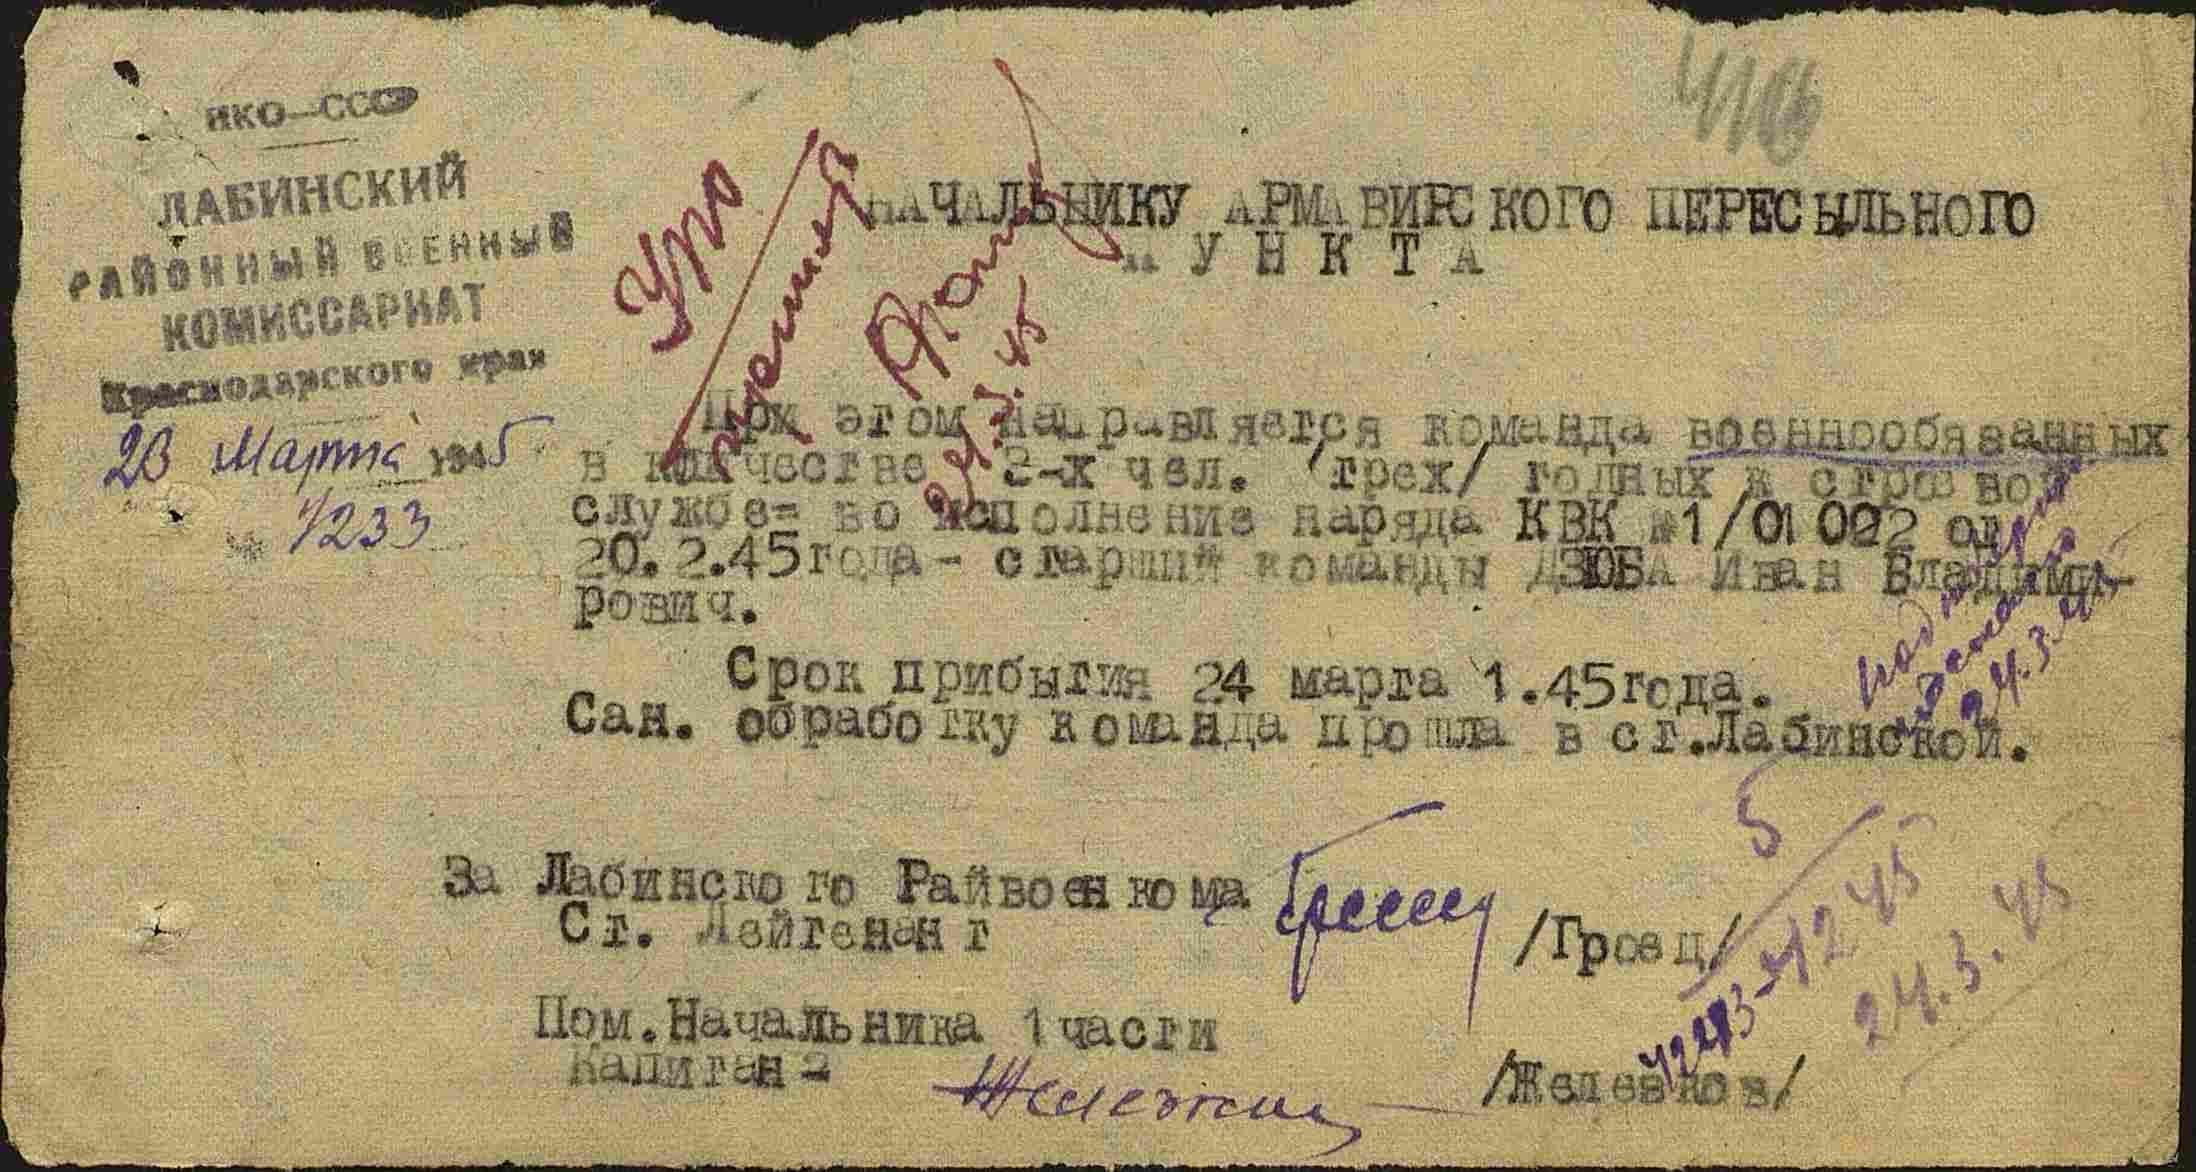 НКО—СССР
ЛАБИНСКИЙ
РАЙОННЫЙ ВОЕННЫЙ
КОМИССАРИАТ
Краснодарского края
23 Марта 1945
№ 4233
416
НАЧАЛЬНИКУ АРМАВИРСКОГО ПЕРЕСЫЛЬНОГО
ПУНКТА
УРО
24.3.45
При этом направляется команда военнообязанных
в количестве 3-х чел. /трех/ годных к строевой
службе= во исполнение наряда КВК №1/01002 от
20.2.45года- старший команды ДЗЮБА Иван Владими-
рович.
Срок прибытия 24 марта 1.45года.
Сан. обработку команда прошла в ст.Лабинской.
24.3.45
За Лабинского Райвоенкома
Ст. Лейтенант /Гроец/
Пом.Начальника 1 части
Капитан- /Желевков/
5
24.3.45